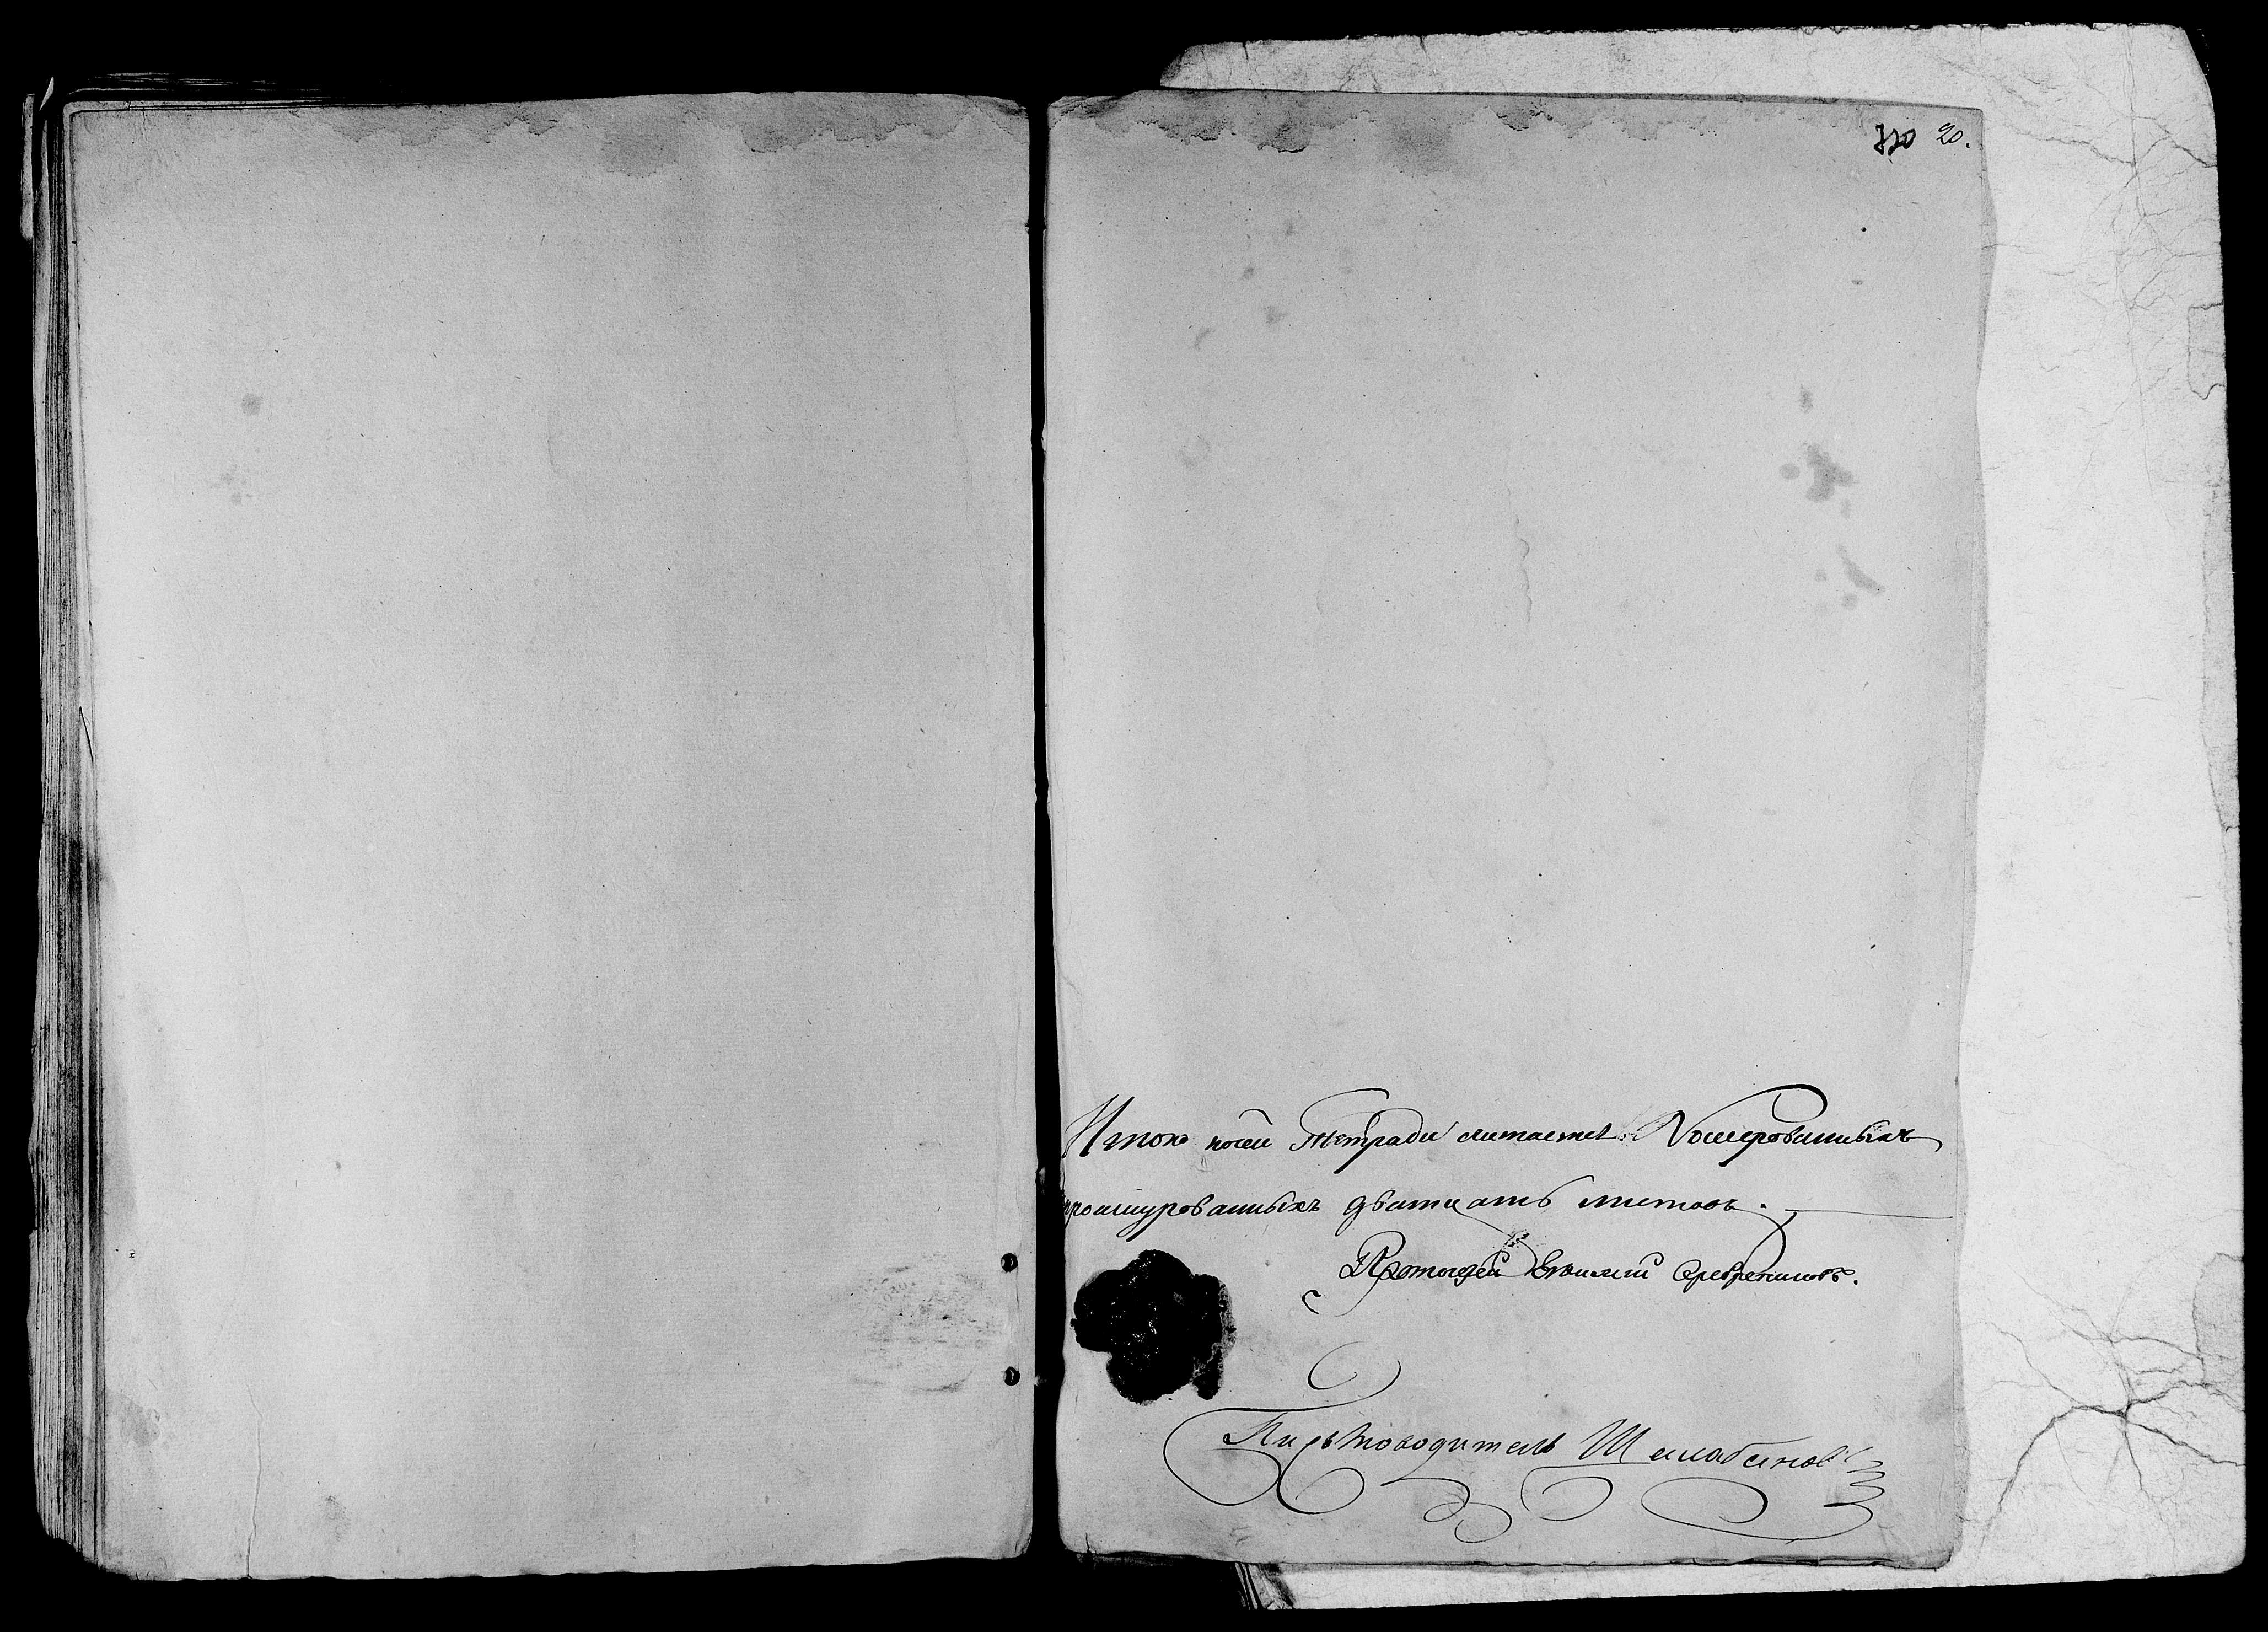 770 20.
Итого въ сей тетради считается Номерованныхъ
прошнурованныхъ дватцать листовъ.
Протоіерей Евѳимій Серебрениковъ.
Письмоводитель